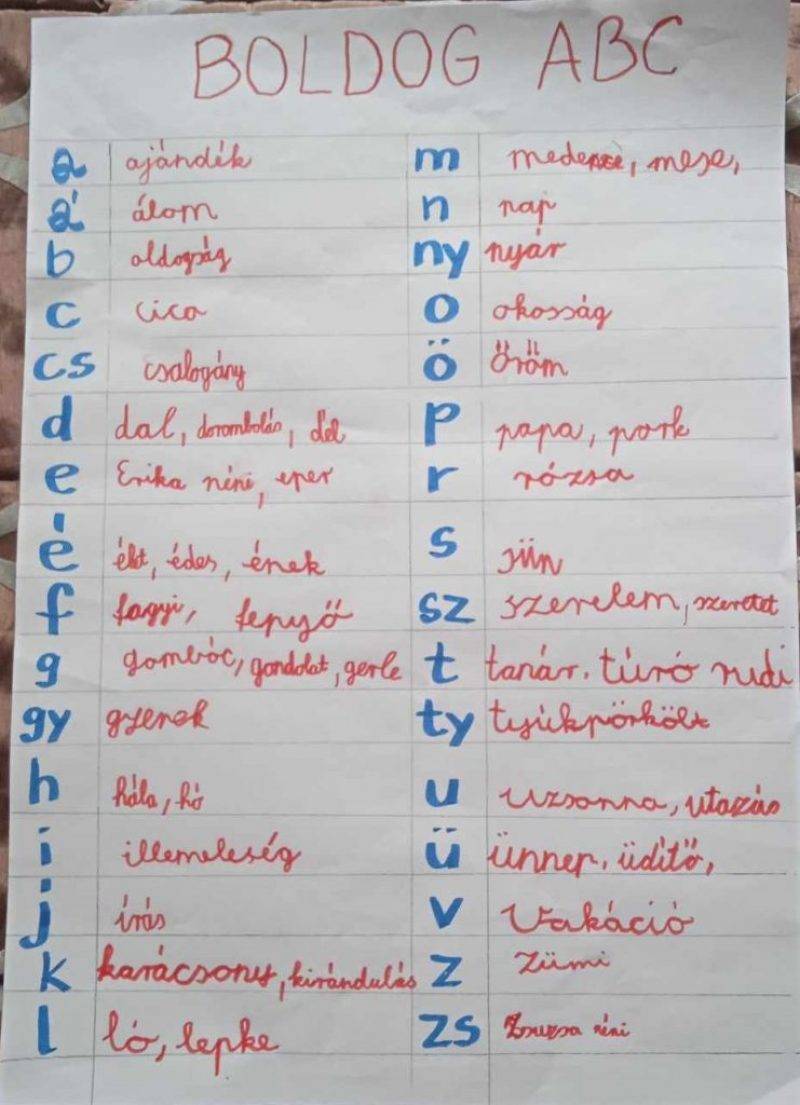 BOLDOG ABC
a ajándék
á álom
b oldogság
c cica
cs csalogány
d dal, dorombolás, dél
e Erika néni, eper
é élet, édes, ének
f fagyi, fenyő
g gombóc, gondolat, gerle
gy gyerek
h hála, hó
i illemeleség
j írás
k karácsony, kirándulás
l ló, lepke
m medence, mese,
n nap
ny nyár
o okosság
ö öröm
p papa, pork
r rózsa
s sün
sz szerelem, szeretet
t tanár. túró rudi
ty tyúkpörkölt
u uzsonna, utazás
ü ünnep. üdítő,
v Vakáció
z Zümi
zs Zsuzsa néni